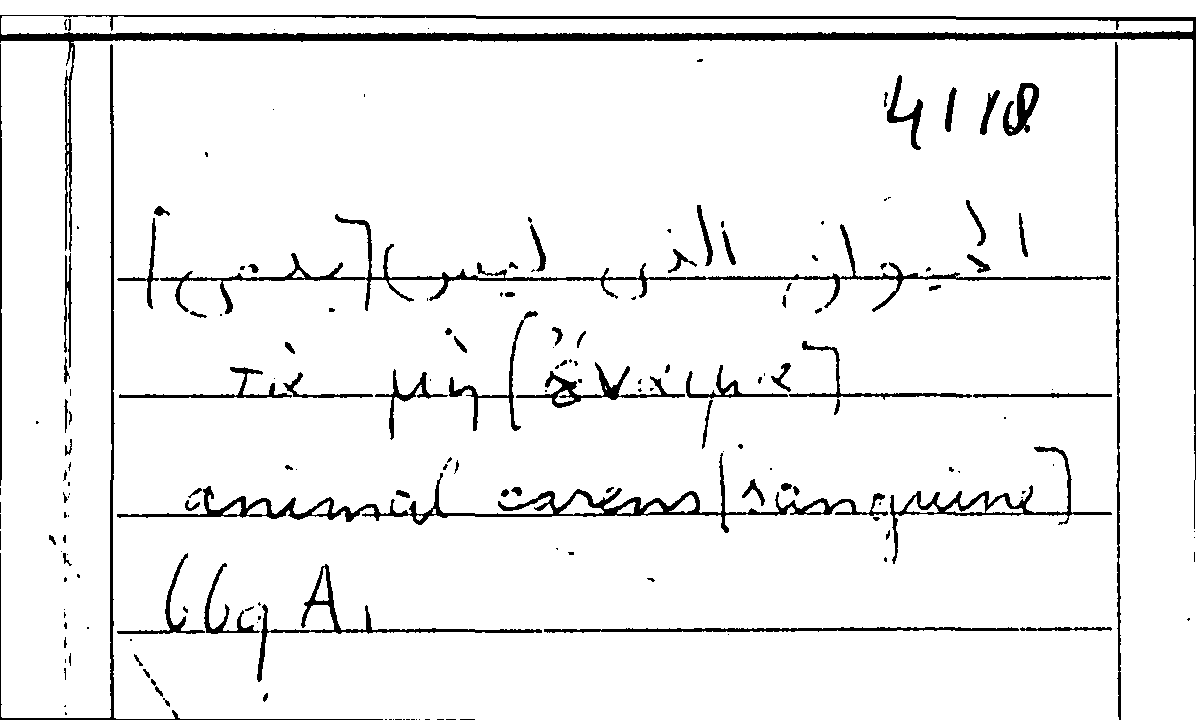 41 18
الحيوان الذى ليس [بدمى]
τὰ μὴ [ἔναιμα]
animal carens [sanguine]
669 A1